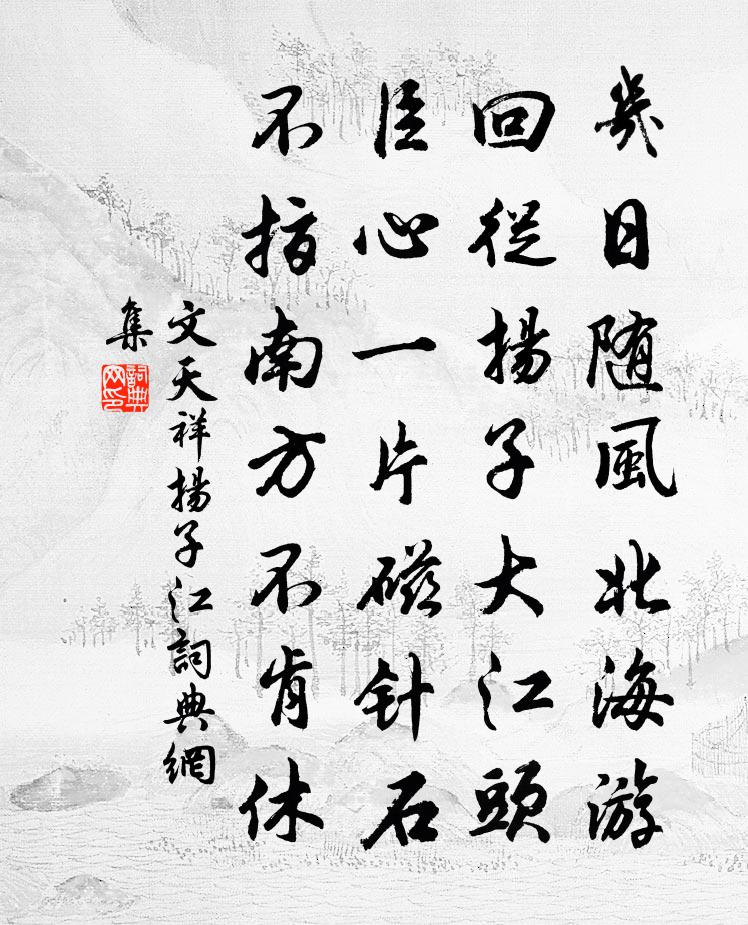 幾日随風北海游
回從揚子大江頭
臣心一片磁针石
不指南方不肯休
文天祥揚子江詞典網
集
詞典
网印